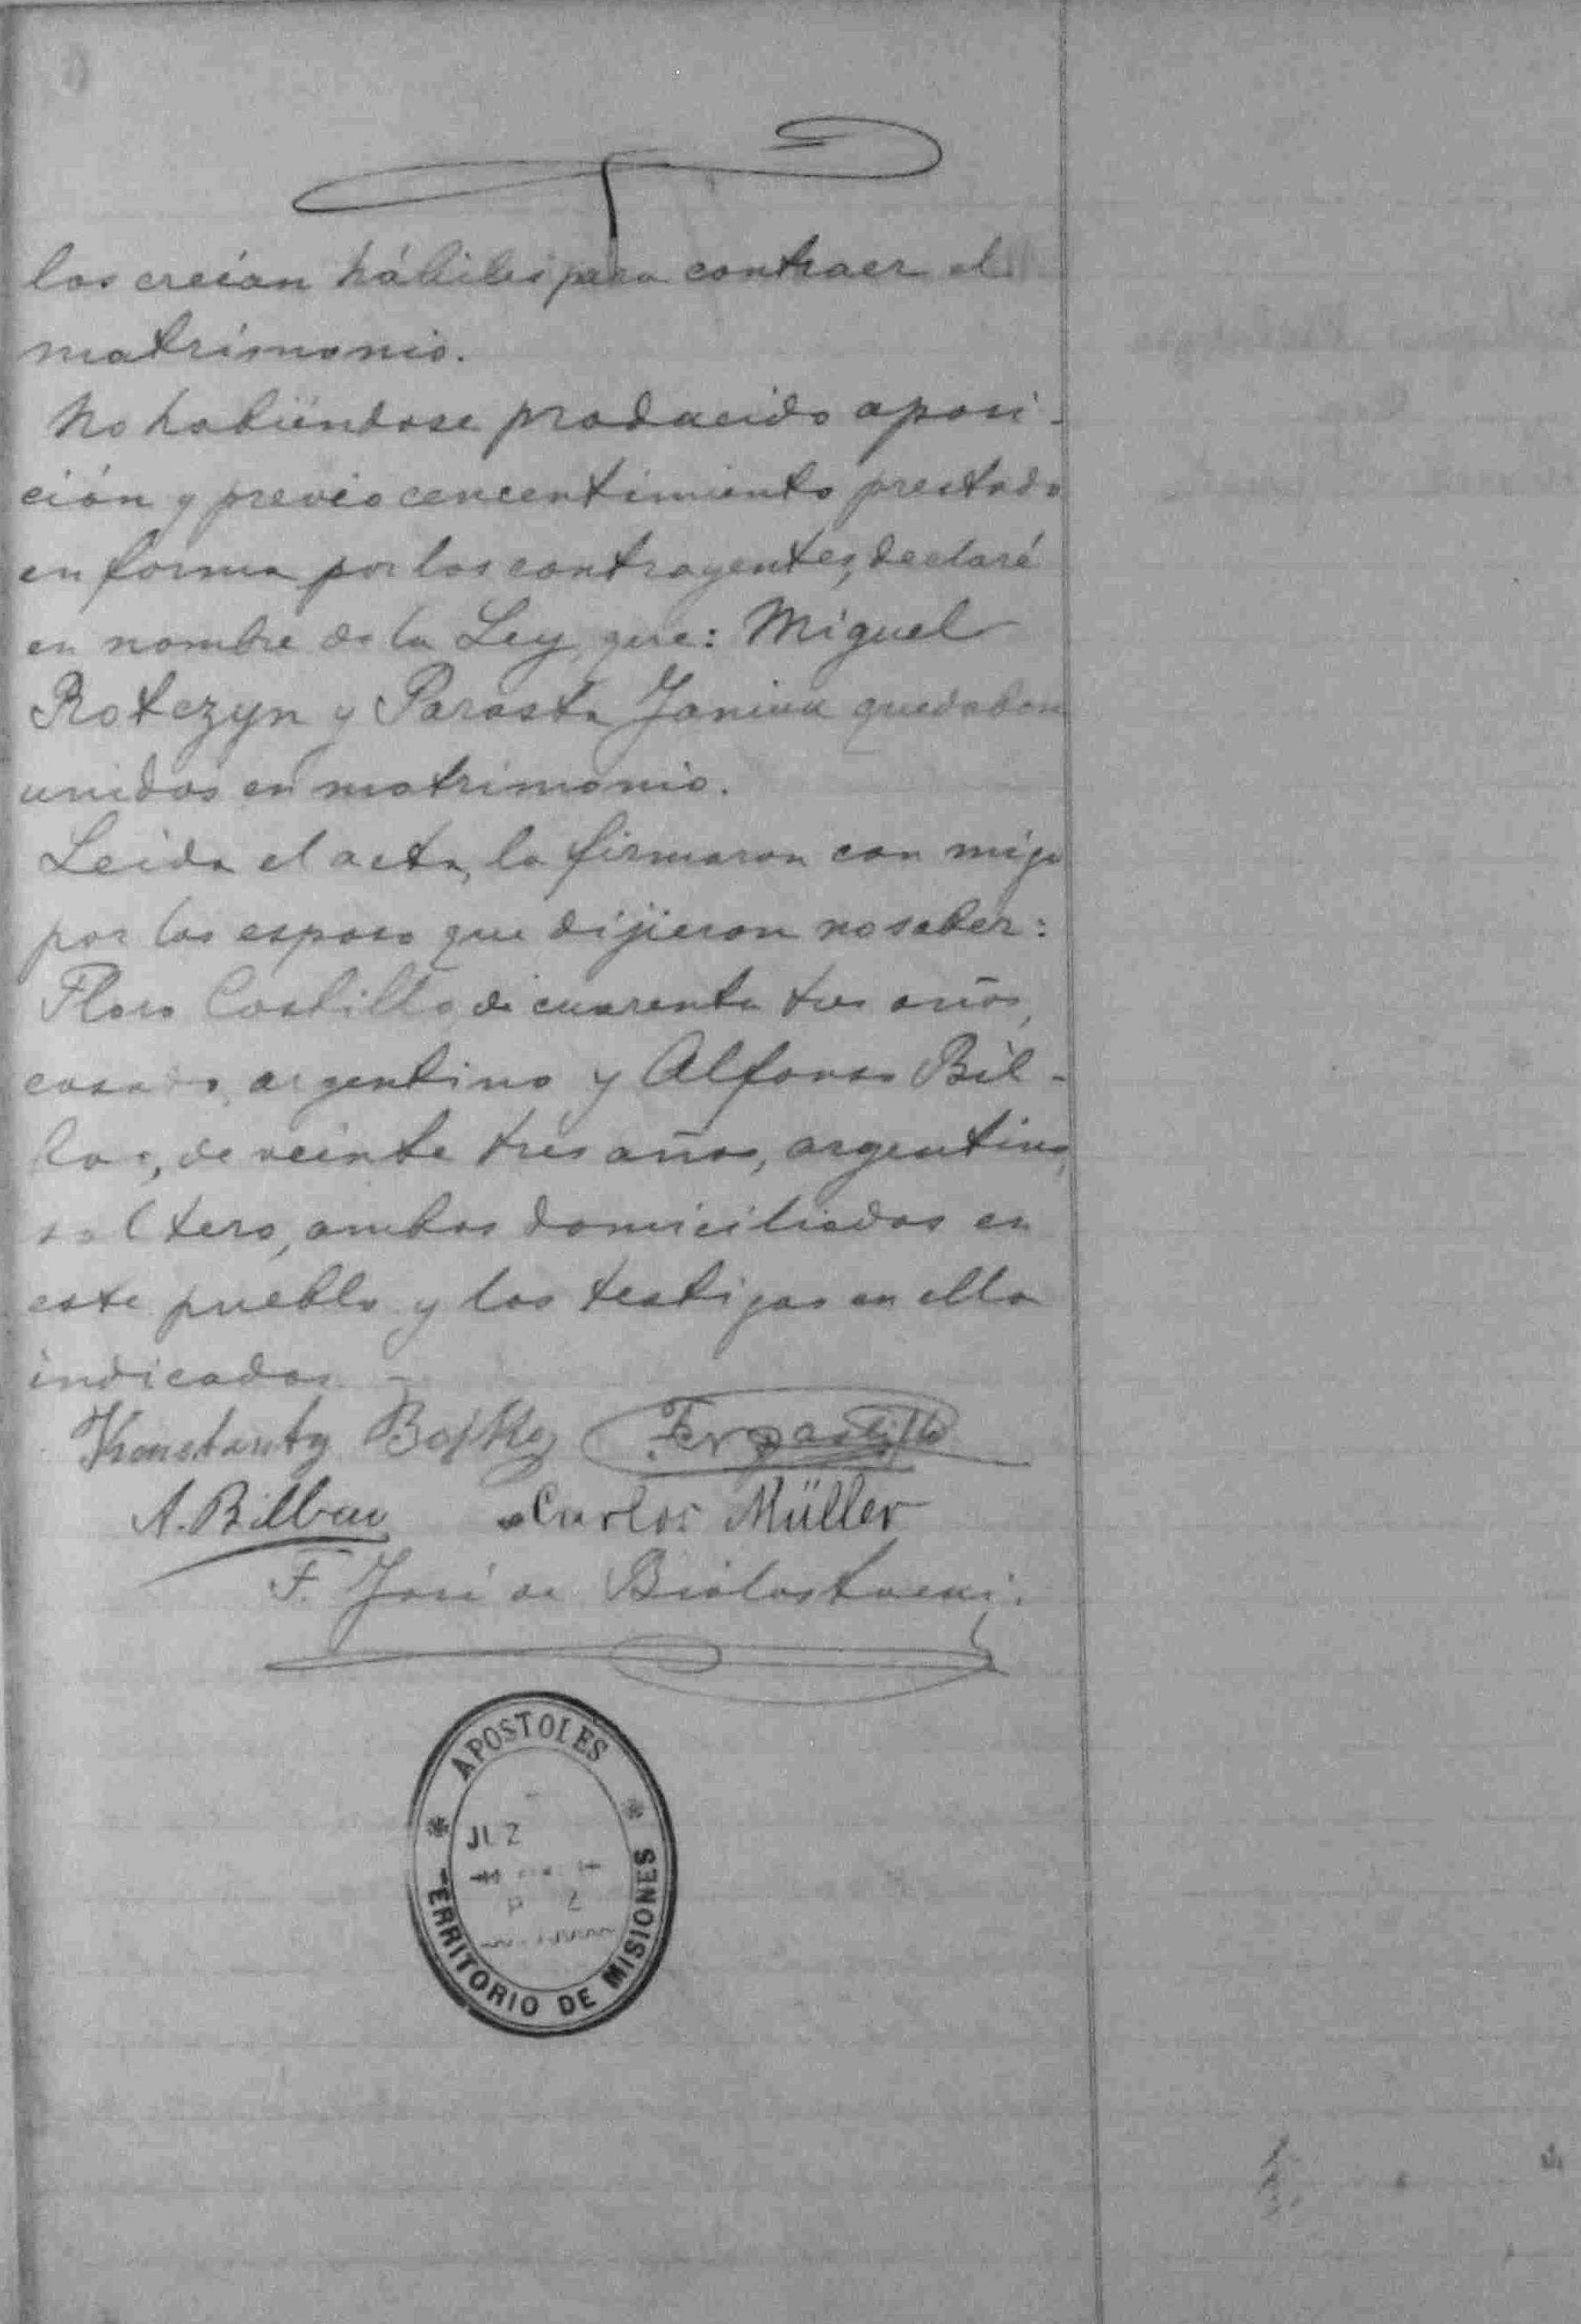 los creían hábiles para contraer el
matrimonio.
No habiéndose producido oposi-
ción y previo cencentimiento prestado
en forma por los contrayentes, declaré
en nombre de la Ley, que: Miguel
Rotczyn y Parasta Janiuu quedaban
unidos en matrimonio.
Leida el acta, la firmaron con migo
por los esposo que dijieron no saber:
Floro Castillo, de cuarenta tres años,
casado, argentino y Alfonso Bil-
bao, de veinte tres años, argentino,
soltero, ambos domiciliados en
este pueblo y los testigos en ella
indicados.-
Konstanty Bojko Castillo
A. Bilbao Carlos Müller
F. José de Bialostocki.
APOSTOLES
JUZ
P Z
TERRITORIO DE MISIONES